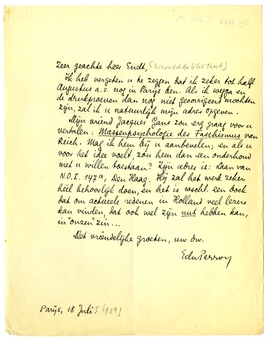 Zeer geachte heer Eindh,
Ik heb vergeten u te zeggen dat ik zeker tot half
Augustus a.s. nog in Parijs ben. Als ik wegga en
de drukproeven dan nog niet gecorrigeerd mochten
zijn, zal ik u natuurlijk mijn adres opgeven.
Mijn vriend Jacques Gans zou erg graag voor u
vertalen: Massenpsychologie des Faschismus, van
Reich. Mag ik hem bij u aanbevelen; en als u
voor het idee voelt, zou hem dan een onderhoud
met u willen toestaan? Zijn adres is: Laan van
N.O.I. 147a, Den Haag. Hij zal het werk zeker
heel behoorlijk doen, en het is wscht. een boek
dat om actueele redenen in Holland veel lezers
kan vinden, dat ook wel zijn nut hebben kan,
in "onzen" zin...
Met vriendelijke groeten, uw dw.
EduPerron
Parijs, 18 Juli